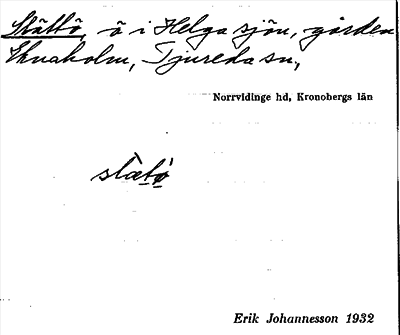 Slättö, ö i Helgasjön, gården
Eknaholm, Tjureda sn,
Norrvidinge hd, Kronobergs län
slætö
Erik Johannesson 1932